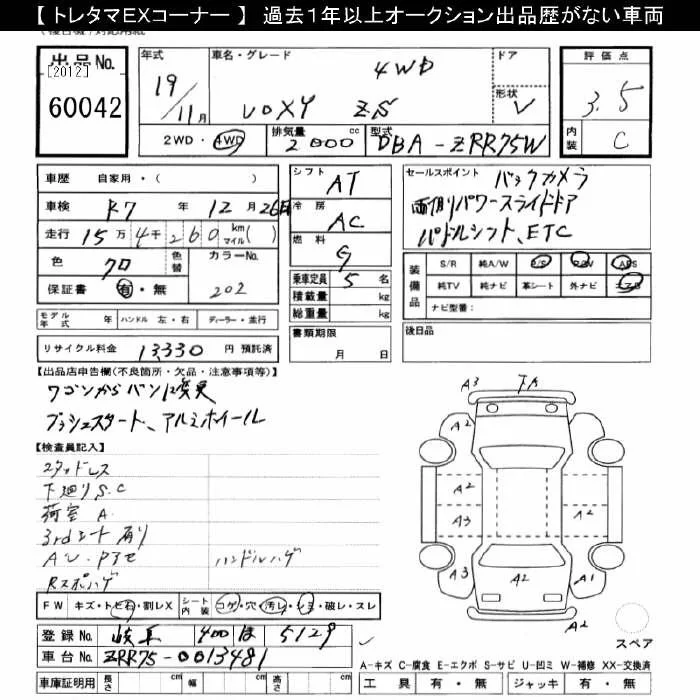 【 トレタマEXコーナー 】 過去1年以上オークション出品歴がない車両
出品No.
[2012]
60042
年式
19/11月
車名・グレード
4WD
VOXY ZS
ドア
形状 V
評価点
3.5
内装 C
2WD・4WD
排気量 2000 cc
型式 DBA-ZRR75W
車歴 自家用・( )
車検 R7年 12月 26日
走行 15万4千260 km マイル( )
色 クロ 色替 カラーNo. 202
保証書 有・無
シフト AT
冷房 AC
燃料 G
乗車定員 5名
積載量 kg
総重量 kg
セールスポイント バックカメラ
両側パワースライドドア
パドルシフト、ETC
装備品
S/R 純A/W P/S P/W ABS
純TV 純ナビ 革シート 外ナビ エアB
ナビ型番:
モデル年式 年 ハンドル 左・右 ディーラー・並行
リサイクル料金 13,330 円 預託済
書類期限
月 日
後日品
【出品店申告欄(不良箇所・欠品・注意事項等)】
ワゴンからバンに変更
プッシュスタート、アルミホイール
【検査員記入】
スタッドレス
下廻りS.C
荷室 A
3rdシート有り
ハンドルハゲ
A3
A2
A2
A3
A2
A3
A2
A1
A2
FW キズ・トビ石・割レX
シート内装 コゲ・穴・汚レ・シミ・破レ・スレ
登録No. 岐阜 400 ほ 5129
車台No. ZRR75-0013481
車庫証明用 長さ cm 幅 cm 高さ cm
スペア
A-キズ C-腐食 E-エクボ S-サビ U-凹ミ W-補修 XX-交換済
工具 有・無 ジャッキ 有・無